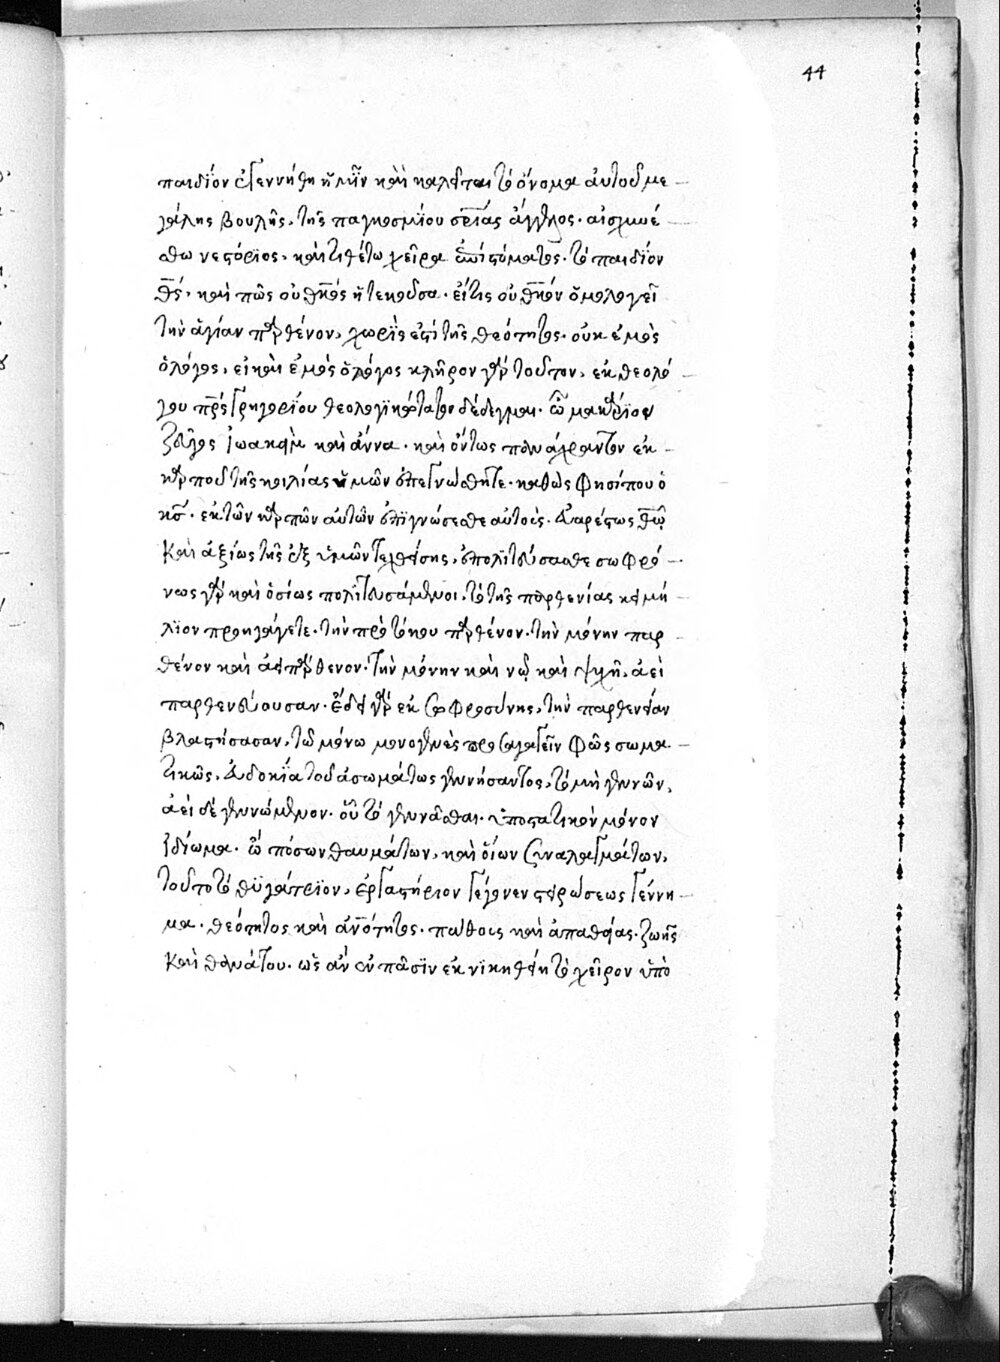 παιδίον ἐγεννήθη ἡμῖν καὶ καλεῖται τὸ ὄνομα αὐτοῦ με-
γάλης βουλῆς, τῆς παγκοσμίου σρίας ἄγγελος. αἰσχυνέ
σθω νεστόριος, καὶ τιθέτω χεῖρα ἐπὶ στόματος. τὸ παιδίον
θς, καὶ πῶς οὐ θκος ἡ τεκοῦσα. εἴτις οὐ θκον ὁμολογεῖ
τὴν ἁγίαν παρθένον, χωρὶς ἐστὶ τῆς θεότητος. οὐκ ἐμὸς
ὁ λόγος, εἰ καὶ ἐμὸς ὁ λόγος κλῆρον γὰρ τοῦτον, ἐκ θεολό-
γου πρς γρηγορίου θεολογϊκώτατον δέδεγμαι. ὢ μακάριον
ζεῦγος ἰωακεὶμ καὶ ἄννα. καὶ ὄντως παναχραντον ἐκ-
καρποῦ τῆς κοιλίας ὑμῶν ἐπεγνώσθητε. καθὼς φησί που ὁ
κς. ἐκ τῶν καρπῶν αὐτῶν ἐπϊγνώσεσθε αὐτούς. εὐαρέστως θῶ
καὶ ἀξίως τῆς ἐξ ὑμῶν τεχθείσης, ἐπολϊτεύσασθε σωφρό-
νως γὰρ καὶ ὁσίως πολϊτευσάμενοι, τὸ τῆς παρθενίας κειμή-
λϊον προηγάγετε. τὴν πρὸ τόκου παρθένον. τὴν μόνην παρ-
θένον καὶ ἀειπάρθενον. τὴν μόνην καὶ νῷ καὶ ψυχῇ, ἀεὶ
παρθενεύουσαν. ἔδει γὰρ ἐκ σωφροσύνης, τὴν παρθενίαν
βλαστήσασαν, τῶ μόνω μονογενὲς προσαγαγεῖν φῶς σωμα-
τικῶς, εὐδοκία τοῦ ἀσωμάτως γεννήσαντος, τὸ μὴ γεννῶν,
ἀεὶ δὲ γεννώμενον. οὗ τὸ γεννᾶσθαι. ὑποστατικὸν μόνον
ἰδίωμα. ὢ πόσων θαυμάτων, καὶ οἵων συναλαγμάτων,
τοῦτο τὸ θϋγάτρϊον, ἐργαστήριον γέγονεν στειρώσεως γέννη-
μα. θεότητος καὶ ἀνότητος. πάθους καὶ ἀπαθείας. ζωῆς
καὶ θανάτου. ὡς ἂν ἐν πᾶσϊν ἐκνϊκηθείη τὸ χεῖρον ὑπὸ
44